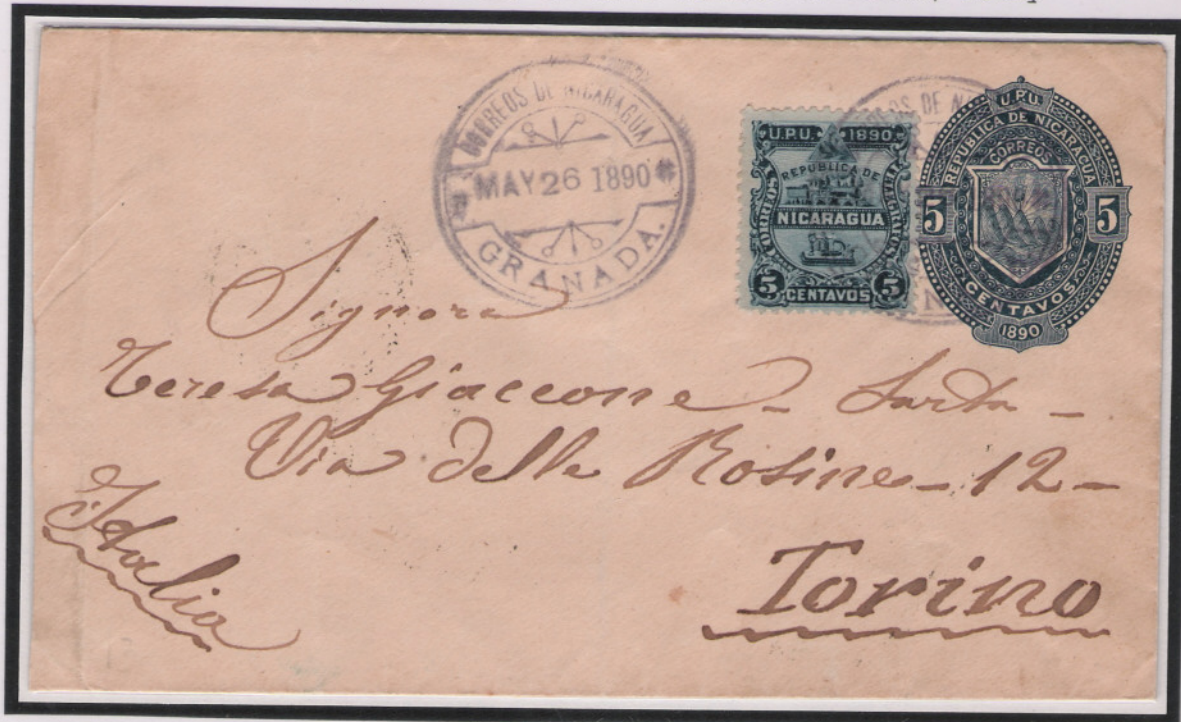 CORREOS DE NICARAGUA
MAY 26 1890
GRANADA.
U.P.U. 1890
REPUBLICA DE
NICARAGUA
CORREOS
TELEGRAFOS
5 CENTAVOS 5
U.P.U.
REPUBLICA DE NICARAGUA
CORREOS
5 5
CENTAVOS
1890
Signora
Teresa Giaccone - Sarta -
Via delle Rosine - 12 -
Torino
Italia